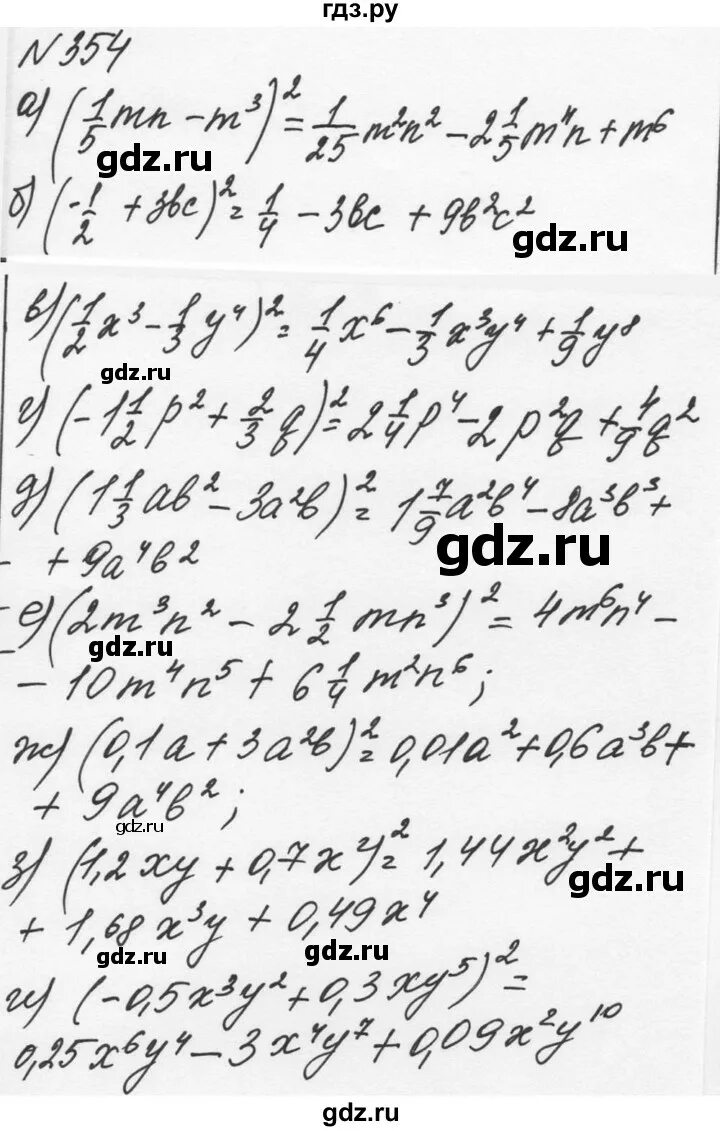 гдз.ру
N 354
а) (1/5 mn - m³)² = 1/25 m²n² - 2 1/5 m⁴n + m⁶
gdz.ru
б) (-1/2 + 3bc)² = 1/4 - 3bc + 9b²c²
gdz.ru
в) (1/2 x³ - 1/3 y⁴)² = 1/4 x⁶ - 1/3 x³y⁴ + 1/9 y⁸
gdz.ru
г) (-1 1/2 p² + 2/3 q)² = 2 1/4 p⁴ - 2p²q + 4/9 q²
д) (1 1/3 ab² - 3a²b)² = 1 7/9 a²b⁴ - 8a³b³ +
gdz.ru
+ 9a⁴b²
е) (2m³n² - 2 1/2 mn³)² = 4m⁶n⁴ -
gdz.ru
- 10m⁴n⁵ + 6 1/4 m²n⁶;
ж) (0,1a + 3a²b)² = 0,01a² + 0,6a³b +
+ 9a⁴b²;
gdz.ru
з) (1,2xy + 0,7x²)² = 1,44x²y² +
gdz.ru
+ 1,68x³y + 0,49x⁴
gdz.ru gdz.ru
и) (-0,5x³y² + 0,3xy⁵)² =
0,25x⁶y⁴ - 3x⁴y⁷ + 0,09x²y¹⁰
gdz.ru